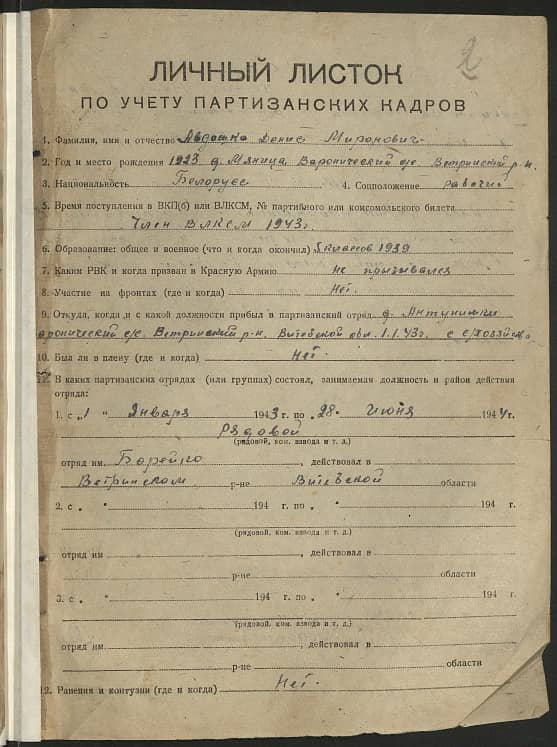 2
ЛИЧНЫЙ ЛИСТОК
ПО УЧЕТУ ПАРТИЗАНСКИХ КАДРОВ
1. Фамилия, имя и отчество Авдошка Денис Миронович
2. Год и место рождения 1923 д. Мяница Воронический с/с Ветринский р-н.
3. Национальность Белорус 4. Соцположение рабочий
5. Время поступления в ВКП(б) или ВЛКСМ, № партийного или комсомольского билета
Член ВЛКСМ 1943г.
6. Образование: общее и военное (что и когда окончил) 1939
7. Каким РВК и когда призван в Красную Армию не призывался
8. Участие на фронтах (где и когда) Нет.
9. Откуда, когда и с какой должности прибыл в партизанский отряд д. Антунишки
Воронический с/с. Ветринский р-н. Витебской обл. 1.1.43г. с с/хозяйства
10. Был ли в плену (где и когда) Нет.
11. В каких партизанских отрядах (или группах) состоял, занимаемая должность и район действия
отряда:
1. с „1 “ Января 1943 г. по „28“ Июня 1944 г.
Рядовой
(рядовой, ком. взвода и т. д.)
отряд им. Борейко, действовал в
Ветринском р-не Витебской области
2. с „ “ 194 г. по „ “ 194 г.
(рядовой, ком. взвода и т. д.)
отряд им , действовал в
р-не области
3. с „ “ 194 г. по „ “ 194 г.
(рядовой, ком. взвода и т. д.)
отряд им , действовал в
р-не области
12. Ранения и контузии (где и когда) Нет.